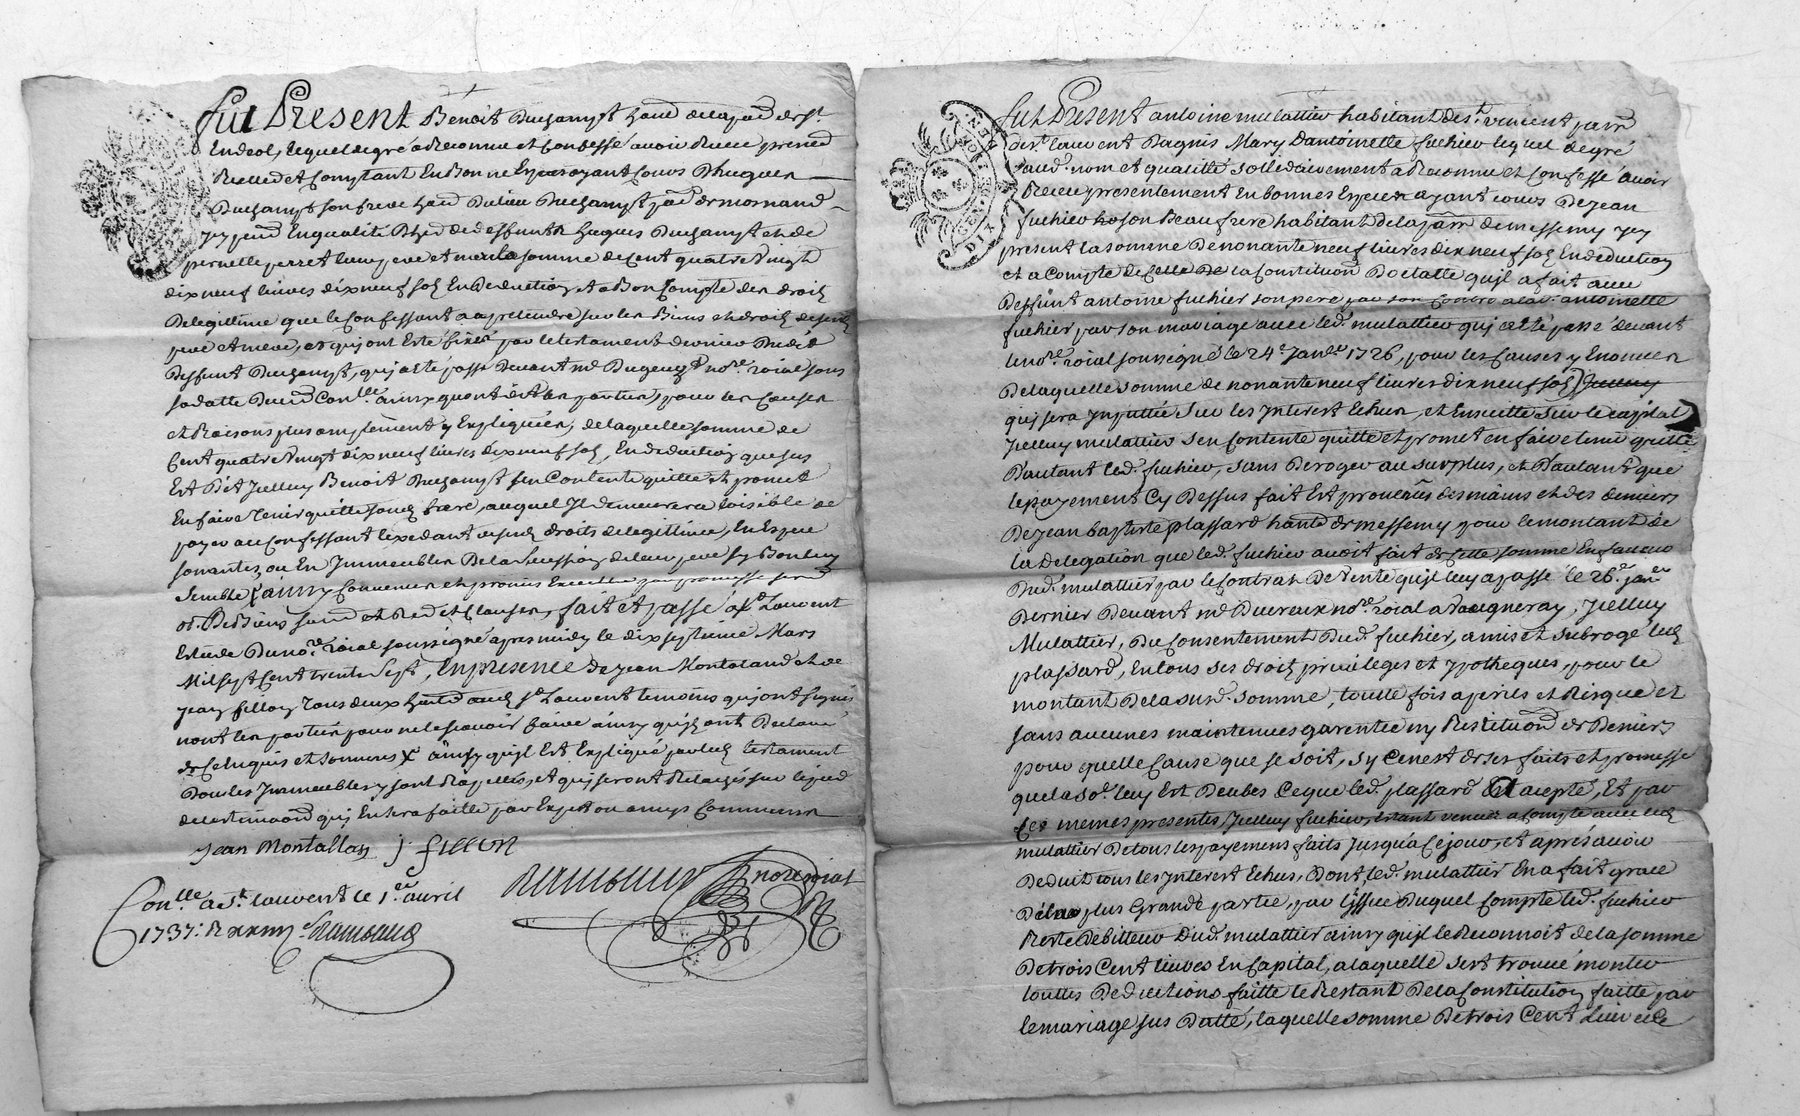 Fut Present Benoit Duchampt
Lequel de gré a Reconnu et Confessé avoir Receu
Reelled et Comptant En Bonne Espece ayant Cours D'hugues
Duchampt son frere
En qualité d'her de deffunts hugues Duchampt et de
pernelle perret leurs pere et mere la somme de Cent quatre Vingt
dix neuf livres dix neuf sols En Deduction et a Bon Compte des droits
De legitime que le Confessant a a pretendre sur les Biens et droits de
pere et mere, et qui ont Eté fixés par le testament dernier Dud.
Deffunt Duchampt, qui a eté passé Devant me no.re roial sous
sa datte ainsy qu'ont dit les parties, pour les Causes
et Raisons plus amplement y Expliquées, de laquelle somme de
Cent quatre Vingt dix neuf livres dix neuf sols, En deduction que sus
Est Dit Jcelluy Benoit Duchampt s'en Contente quitte et promet
En faire tenir quitte frere, auquel Jl demeurera loisible de
payer au Confessant l'exedant droits de legitime, En Espece
sonantes, ou En Jmmeubles De la Sucession de leur pere sy Bon luy
semble, ainsy Convenu et promis
Biens fait et passé a St Laurent
Estude Du no.re roial soussigné apres midy le dix septieme Mars
Mil sept Cent trente Sept, En presence de Jean Montaland et de
Jean fillon tous deux St Laurent temoins qui ont signés
non les parties pour ne le scavoir faire ainsy qu'ils ont Declaré
de Ce Enquis et sommés X ainsy qu'il Est Expliqué par led. testament
Dont les Jmmeubles y sont Rapellés, et qui seront Relachés sur le pied
de l'estimaon qui En sera faitte par Experts ou amys Communs
Jean Montallan J. fillon
Ramband no.re roial
Con.lle a St. Laurent le 1.er avril
1737. R
DIX DEN GENERA LYON
Fut Present antoine mulattier habitant de St. vincent
de St. Laurent Dagnis Mary D'antoinette fuchier lequel de gré
aud. nom et qualitté sollidairement a Reconnu et Confessé avoir
Receu presentement en bonnes Especes ayant cours De Jean
fuchier son Beau frere habitant De la parr. de messemy Jcy
present la somme De nonante neuf livres dix neuf sols En deduction
et a Compte de Celle De la Constitution Doctalle qu'il a fait avec
Deffunt antoine fuchier son pere a lad. antoinette
fuchier par son mariage avec led. mulattier qui a eté passé devant
le no.re roial soussigné le 24.e Jan.er 1726, pour les Causes y Enoncées
De laquelle somme de nonante neuf livres dix neuf sols
qui sera Jmputtée Sur les Jnterest Echus, et Ensuitte Sur le capital
Jcelluy mulattier s'en Contente quitte et promet en faire tenir quitte
D'autant led. fuchier, sans Deroger au surplus, et D'autant que
le payement Cy Dessus fait Est provenu des mains et des deniers
De Jean baptiste plassard hant. de messemy pour le montant de
la Delegation que led. fuchier avoit fait de Cette somme En faveur
Dud. mulattier par le Contrat De Vente qu'il luy a passé le 26.e Jan.er
Dernier Devant me no.re roial a Vaugneray, Jcelluy
Mulattier, Du Consentement Dud. fuchier, a mis et subrogé led.
plassard, En tous ses droits privileges et ypotheques, pour le
montant De la susd. somme, toutte fois a perils et Risque et
sans aucunes maintenues garentie ny Restituon de Deniers
pour quelle Cause que se soit, sy Ce n'est de ses faits et promesse
que la so.e luy Est Deube, Ce que led. plassard a acepté, Et par
Ces memes presentes, Jcelluy fuchier, Estant venu a Compte avec led.
mulattier De tous les payemens faits Jusqu'a Ce jour, et aprés avoir
Deduit tous les Jnterest Echus, Dont led. mulattier En a fait grace
De la plus Grande partie, par l'Jssue Duquel Compte led. fuchier
Reste Debitteur Dud. mulattier ainsy qu'il le Reconnoit de la somme
De trois Cent livres En Capital, a laquelle s'est trouvé monter
touttes Deductions faitte le Restant De la Constitution faitte par
le mariage sus Datté, laquelle somme De trois Cent Livres